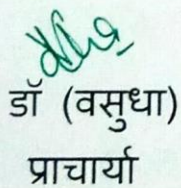 डॉ (वसुधा)
प्राचार्या